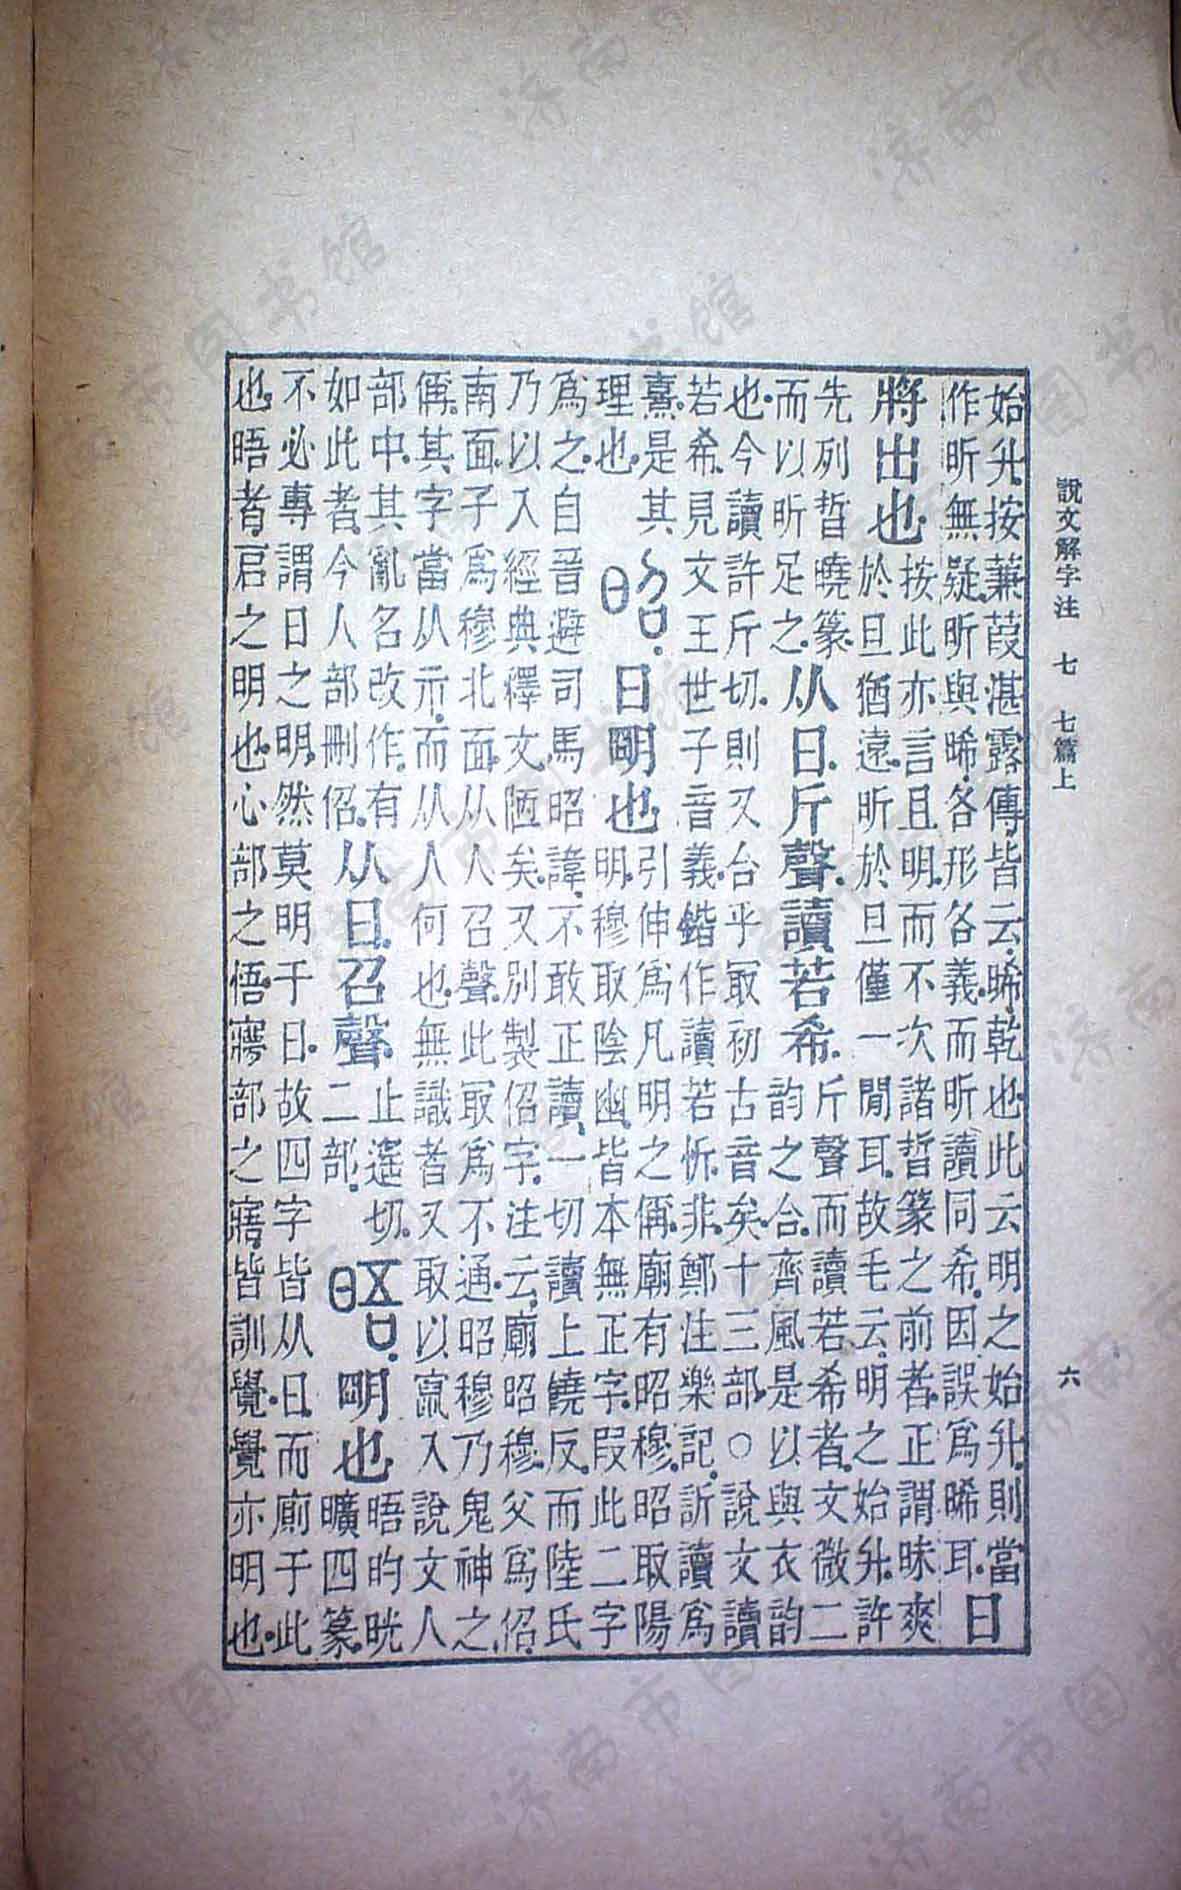 說文解字注 七 七篇上 六
始升按蒹葭湛露傳皆云晞乾也此云明之始升則當
作昕無疑昕與晞各形各義而昕讀同希因誤爲晞耳
日
將出也
按此亦言且明而不次諸晢篆之前者正謂昧爽
於旦猶遠昕於旦僅一閒耳故毛云明之始升許
先列晢曉篆
而以昕足之
从日斤聲讀若希
斤聲而讀若希者文微二
韵之合齊風是以與衣韵
也今讀許斤切則又合乎㝡初古音矣十三部○說文讀
若希見文王世子音義鍇作讀若忻非鄭注樂記訢讀爲
熹是其
理也
昭
日朙也
引伸爲凡明之偁廟有昭穆昭取陽
明穆取陰幽皆本無正字叚此二字
爲之自晉避司馬昭諱不敢正讀一切讀上饒反而陸氏
乃以入經典釋文陋矣又別製佋字注云廟昭穆父爲佋
南面子爲穆北面从人召聲此㝡爲不通昭穆乃鬼神之
偁其字當从示而从人何也無識者又取以竄入說文人
部中其亂名改作有
如此者今人部刪佋
从日召聲
止遙切
二部
晤
朙也
晤昀晄
曠四篆
不必專謂日之明然莫明于日故四字皆从日而廁于此
也晤者启之明也心部之悟㝱部之寤皆訓覺覺亦明也